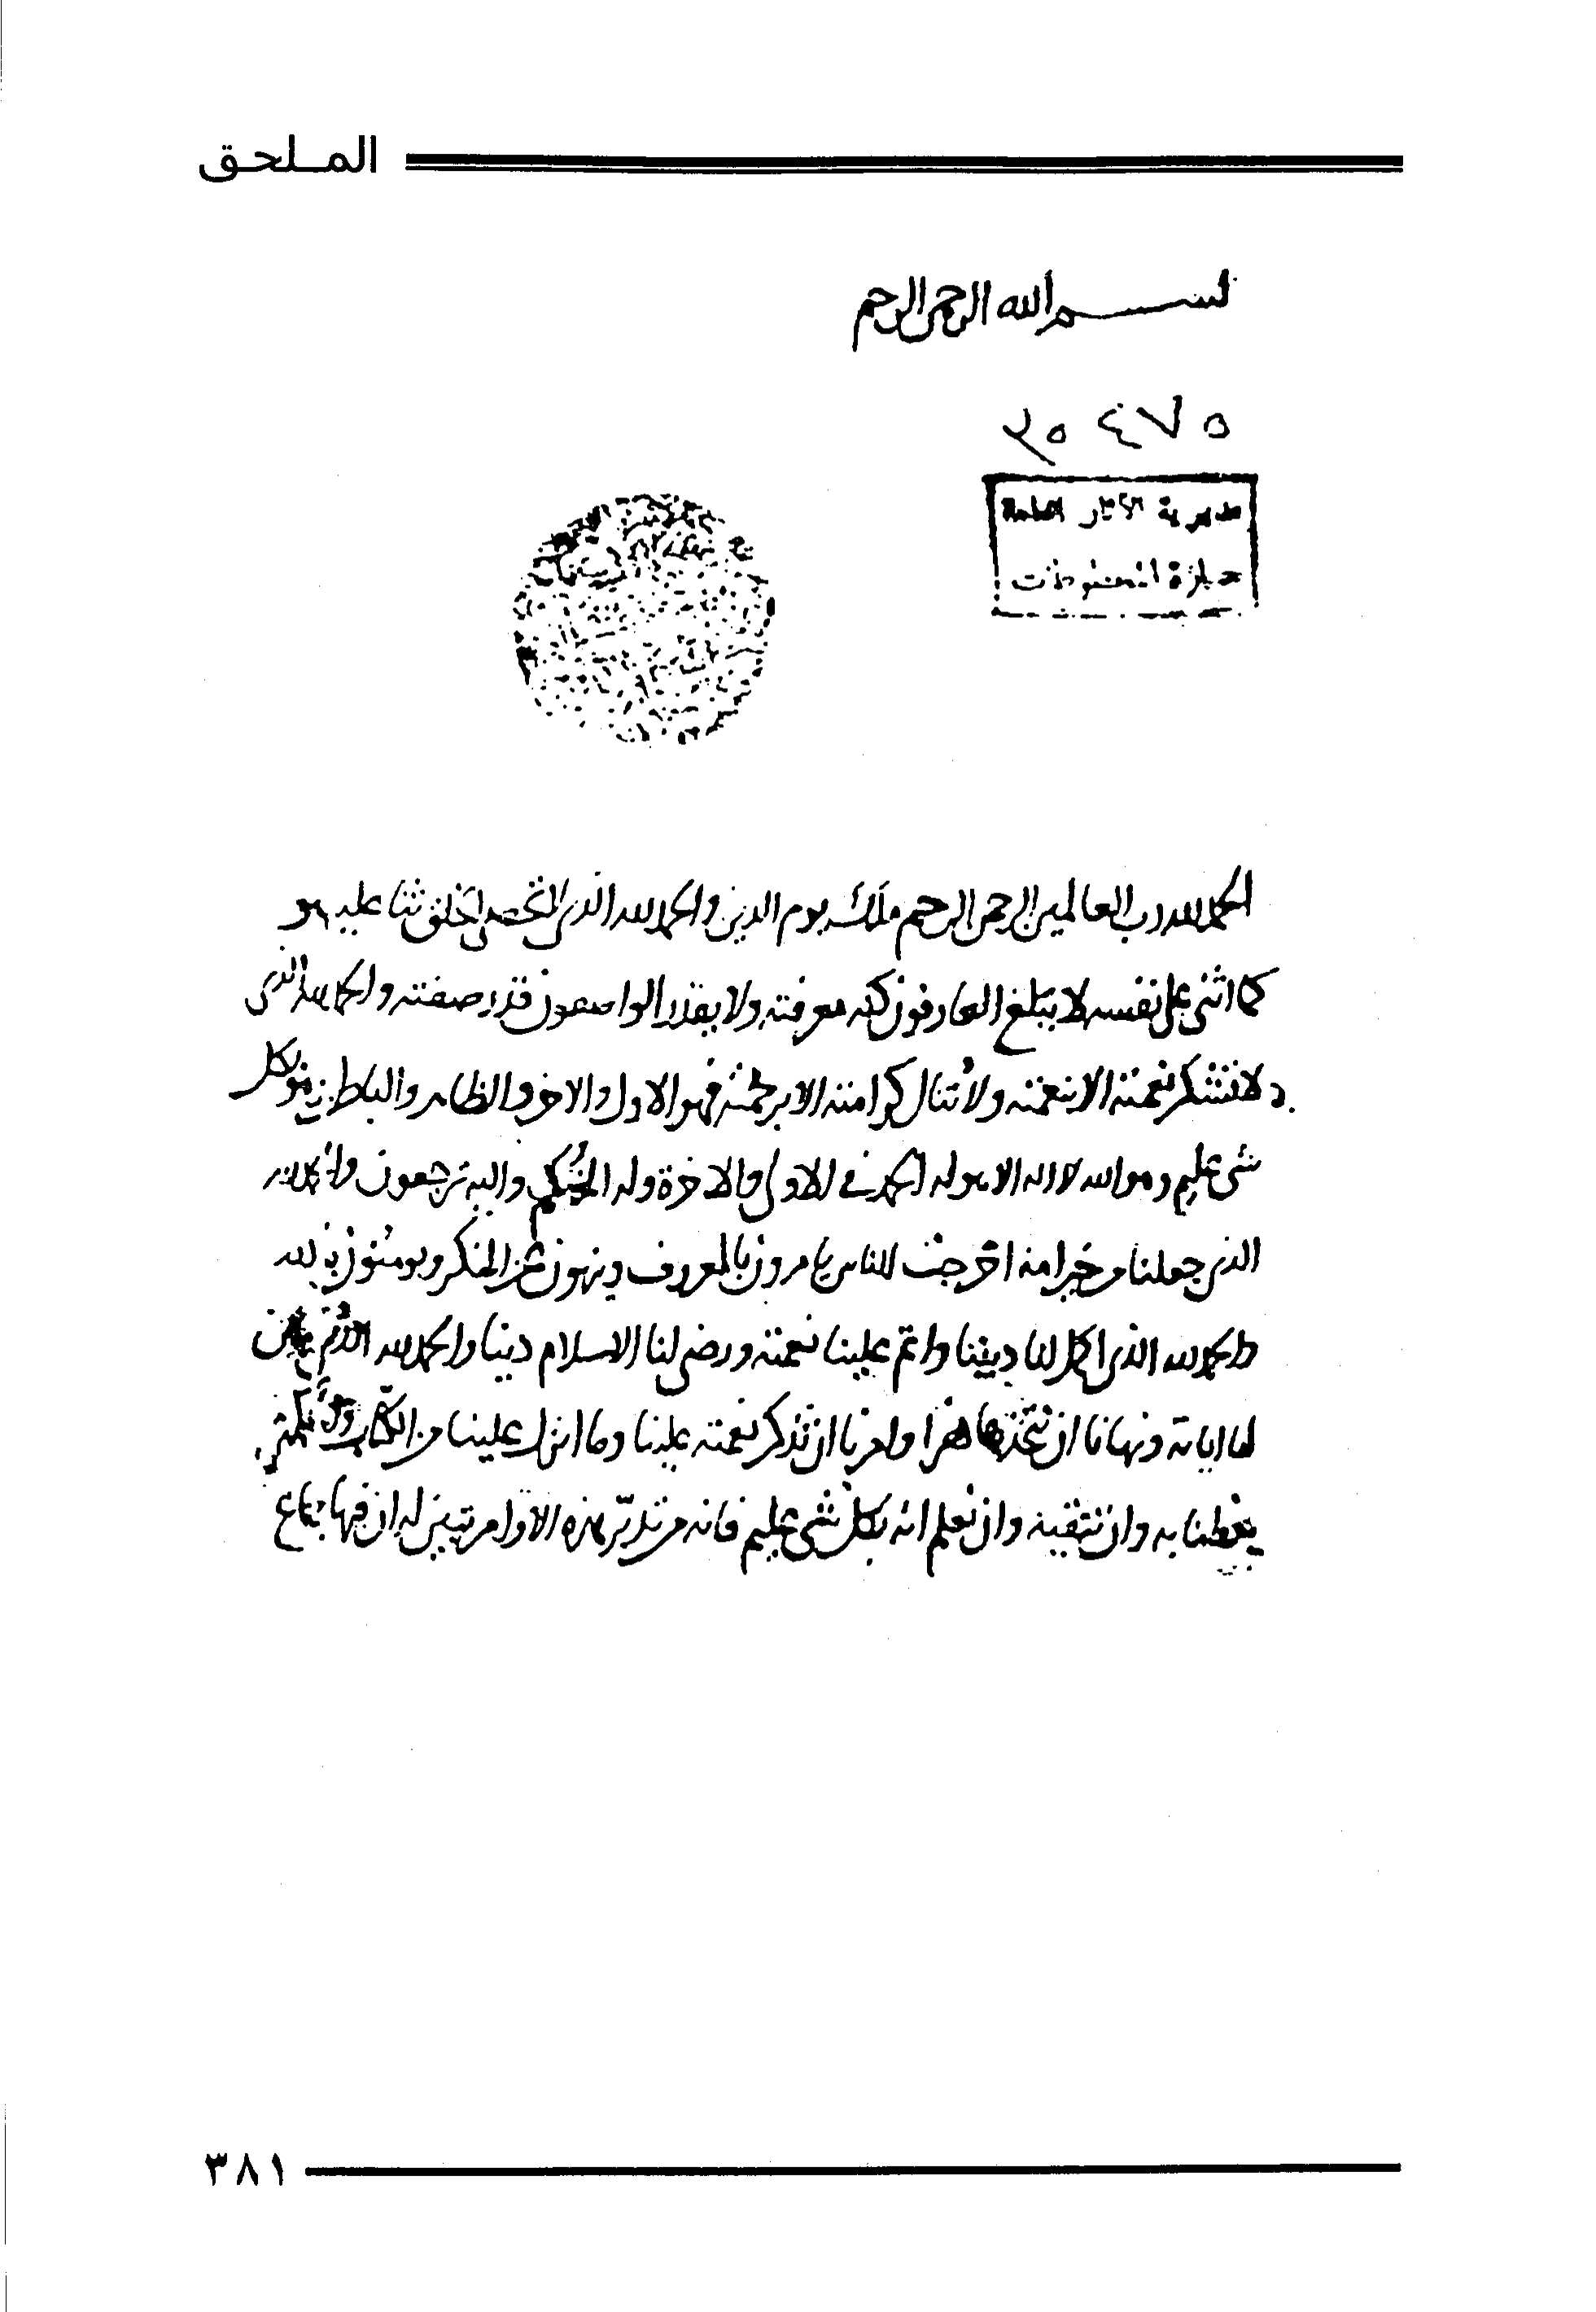 الملحق
بسم الله الرحمن الرحيم
٥ ٧ ٤ ٥٢
مديرية الآثار العامة
حيازة المخطوطات
الحمد لله رب العالمين الرحمن الرحيم ملك يوم الدين والحمد لله الذي لا تحصى الخلق ثنا عليه هو
كما اثنى على نفسه لا يبلغ العارفون كنه معرفته ولا يقدر الواصفون قدر صفته والحمد لله الذي
لا تشكر نعمته الا بنعمته ولا تنال كرامته الا برحمته فهو الاول والاخر والظاهر والباطن وهو بكل
شي عليم وهو الله لا اله الا هو له الحمد في الاولى والاخرة وله الحكم واليه ترجعون والحمد لله
الذي جعلنا من خير امة اخرجت للناس يامرون بالمعروف وينهون عن المنكر ويومنون بالله
والحمد لله الذي اكمل لنا ديننا واتم علينا نعمته ورضي لنا الاسلام دينا والحمد لله الذي بين
لنا اياته ونهانا ان نتخذها هزوا وامرنا ان نذكر نعمته علينا وما انزل علينا من الكتاب والحكمة
يعظنا به وان نتقيه وان نعلم انه بكل شي عليم فانه من تدبر هذه الاوامر تبين له ان فيها جماع
٣٨١